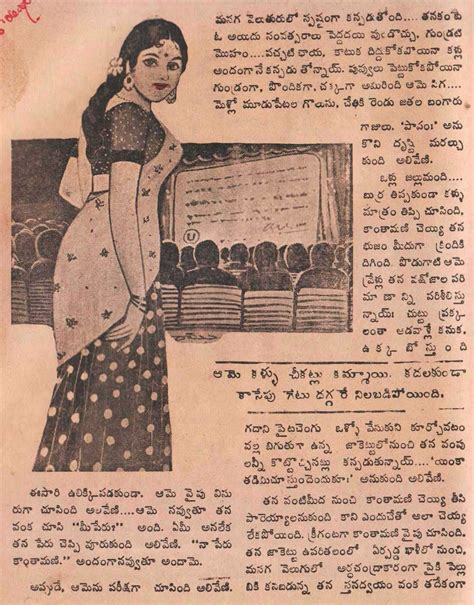 మసగ వెలుతురులో స్పష్టంగా కన్పడుతోంది.... తనకంటె
ఓ అయిదు సంవత్సరాలు పెద్దదయి వుండొచ్చు, గుండ్రటి
మొహం....పచ్చటి ఛాయ, కాటుక దిద్దుకోకపోయినా కళ్లు
అందంగానే కన్పడు తోన్నాయ్. పువ్వులు పెట్టుకోకపోయినా
గుండ్రంగా, పొందికగా, చక్కగా అమరింది ఆమె సిగ....
మెళ్లో మూడుపేటల గొలుసు, చేతికి రెండు జతల బంగారు
గాజులు. 'పాపం!' అను
కొని దృష్టి మరల్చు
కుంది అలివేణి.
ఒళ్లు జల్లుమంది....
బుర్ర తిప్పకుండా కళ్లు
మాత్రం తిప్పి చూసింది,
కాంతామణి చెయ్యి తన
భుజం మీదుగా క్రిందికి
దిగింది. పొడుగాటి ఆమె
వ్రేళ్లు తన వక్షోజాల పరి
మా ణా న్ని పరిశీలిస్తు
న్నాయ్! చుట్టు ప్రక్క
లంతా ఆడవాళ్లే కనుక,
ఉ క్క బో స్తు ం ది
ఆమె కళ్ళు చీకట్లు కమ్మాయి. కదలకుండా
కాసేపు గేటు దగ్గరే నిలబడిపోయింది.
గదాని పైటచెంగు ఒళ్ళో వేసుకుని కూర్చోవటం
వల్ల బిగుతుగా ఉన్న జాకెట్టులోనుంచి తన వంపు
లన్నీ కొట్టొచ్చినట్లు కన్పడుతున్నాయ్....'యింకా
తడిమిచూస్తుందెందుకూ!' అనుకుంది అలివేణి.
తన వంటిమీద నుంచి కాంతామణి చెయ్యి తీసి
పారెయ్యాలనుకుంది కాని ఎందుచేతో అలా చెయ్యలేక
లేకపోయింది. క్రీగంటగా కాంతామణి వైపు చూసింది.
తన జాకెట్టు ఉపరితలంలో ఏర్పడ్డ ఖాళీలో నుంచి,
మసగ వెలుగులో అర్ధచంద్రాకారంగా పైకి పెల్లు
బికి కనిబడున్న తన స్తనద్వయం వంక తదేకంగా
ఈసారి ఉలిక్కిపడకుండా. ఆమె వైపు విసు
రుగా చూసింది అలివేణి....ఆమె నవ్వుతూ తన
వంక చూసి "మీపేరు?" అంది. ఏమీ అనలేక
తన పేరు చెప్పి వూరుకుంది అలివేణి. "నా పేరు
కాంతామణి." అందంగానవ్వుతూ అందామె.
అప్పుడే, ఆమెను పరీక్షగా చూసింది అలివేణి
U